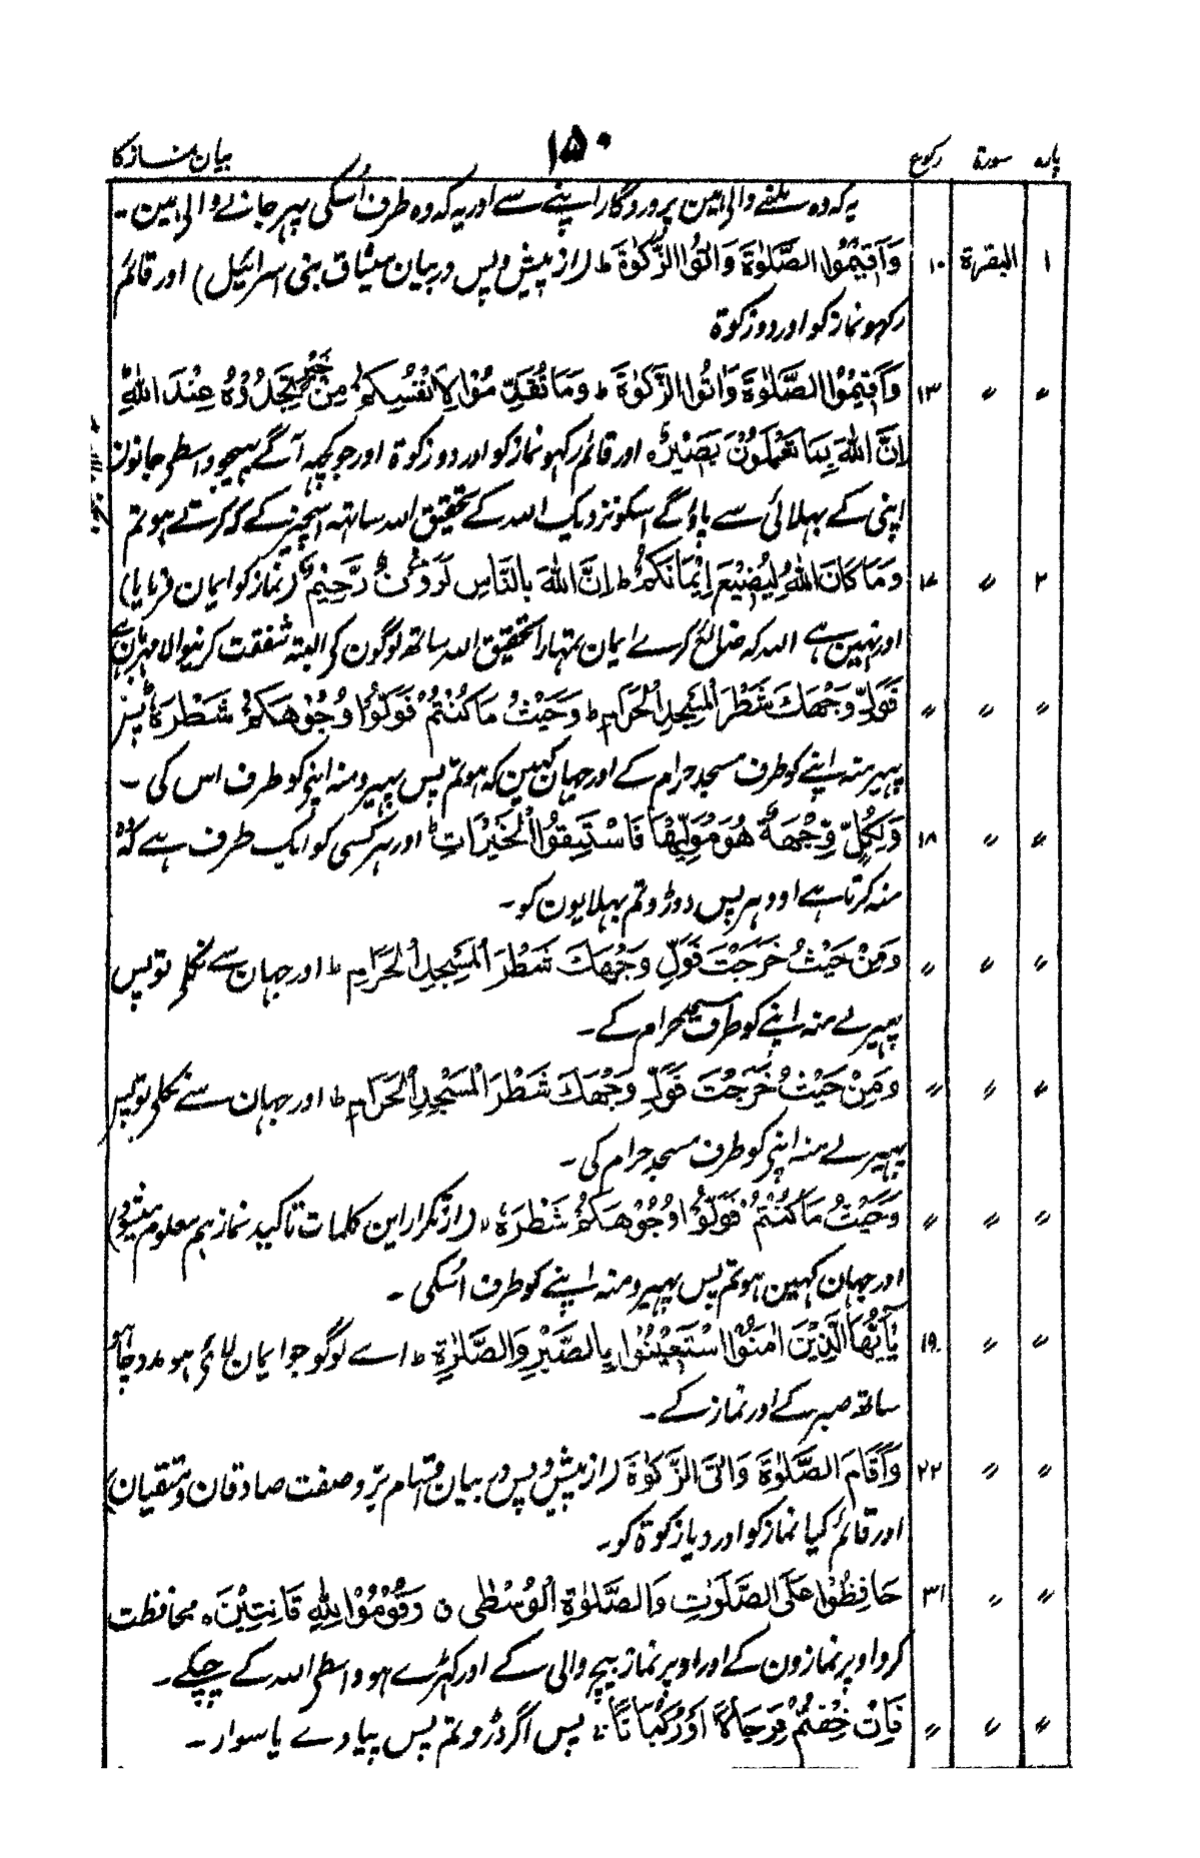 پارہ سورۃ رکوع ۱۵۰ بیان نماز کا
یہ کہ وہ ملنے والی ہین پروردگار اپنے سے اور یہ کہ وہ طرف اُسکی پہر جانے والی ہین۔
۱ البقرۃ ۱۰ وَاَقِیْمُوا الصَّلٰوۃَ وَاٰتُوا الزَّکٰوۃَ ط (از پیش و پس در بیان میثاق بنی اسرائیل) اور قائم
رکہو نماز کو اور دو زکوۃ
〃 〃 ۱۳ وَاَقِیْمُوا الصَّلٰوۃَ وَاٰتُوا الزَّکٰوۃَ ط وَمَا تُقَدِّمُوْا لِاَنْفُسِکُمْ مِنْ خَیْرٍ تَجِدُوْہُ عِنْدَ اللّٰہِ
اِنَّ اللّٰہَ بِمَا تَعْمَلُوْنَ بَصِیْرٌ ہ اور قائم رکہو نماز کو اور دو زکوۃ اور جو کچہہ آگے بہیجو واسطی جانون
اپنی کے بہلائی سے پاؤ گے اسکو نزدیک اللہ کے تحقیق اللہ ساتہہ اسچیز کے کہ کرتے ہو تم
۲ 〃 ۱۷ وَمَا کَانَ اللّٰہُ لِیُضِیْعَ اِیْمَانَکُمْ ط اِنَّ اللّٰہَ بِالنَّاسِ لَرَءُوْفٌ رَّحِیْمٌ (نماز کو ایمان فرمایا)
اور نہین ہے اللہ کہ ضائع کرے ایمان تمہارا تحقیق اللہ ساتھ لوگون کی البتہ شفقت کرنیوالا مہربان ہے
〃 〃 〃 فَوَلِّ وَجْہَکَ شَطْرَ الْمَسْجِدِ الْحَرَامِ ط وَحَیْثُ مَا کُنْتُمْ فَوَلُّوْا وُجُوْہَکُمْ شَطْرَہٗ پس
پہیر منہ اپنے کو طرف مسجد حرام کے اور جہان کہین کہ ہو تم پس پہیرو منہ اپنی کو طرف اس کی ۔
〃 〃 ۱۸ وَلِکُلٍّ وِّجْہَۃٌ ہُوَ مُوَلِّیْہَا فَاسْتَبِقُوا الْخَیْرَاتِ ط اور ہر کسی کو ایک طرف ہے کہ وہ
منہ کرتا ہے اودہر پس دوڑو تم بہلایون کو۔
〃 〃 〃 وَمِنْ حَیْثُ خَرَجْتَ فَوَلِّ وَجْہَکَ شَطْرَ الْمَسْجِدِ الْحَرَامِ ط اور جہان سے نکلے تو پس
پہیرلے منہ اپنے کو طرف مسجد حرام کے۔
〃 〃 〃 وَمِنْ حَیْثُ خَرَجْتَ فَوَلِّ وَجْہَکَ شَطْرَ الْمَسْجِدِ الْحَرَامِ ط اور جہان سے نکلی تو پس
پہیرلے منہ اپنی کو طرف مسجد حرام کی۔
〃 〃 〃 وَحَیْثُ مَا کُنْتُمْ فَوَلُّوْا وُجُوْہَکُمْ شَطْرَہٗ (از تکرار این کلمات تاکید نماز ہم معلوم میشود)
اور جہان کہین ہو تم پس پہیرو منہ اپنے کو طرف اُسکی ۔
〃 〃 ۱۹ یٰاَیُّہَا الَّذِیْنَ اٰمَنُوا اسْتَعِیْنُوْا بِالصَّبْرِ وَالصَّلٰوۃِ ط اے لوگو جو ایمان لائی ہو مدد چاہو
ساتھ صبر کے اور نماز کے۔
〃 〃 ۲۲ وَاَقَامَ الصَّلٰوۃَ وَاٰتَی الزَّکٰوۃَ (از پیش و پس در بیان اقسام برّ و صفت صادقان و متقیان)
اور قائم کیا نماز کو اور دیا زکوۃ کو۔
〃 〃 ۳۱ حَافِظُوْا عَلَی الصَّلَوٰتِ وَالصَّلٰوۃِ الْوُسْطٰی ن وَقُوْمُوْا لِلّٰہِ قَانِتِیْنَ ہ محافظت
کرو اوپر نمازون کے اور اوپر نماز بیچ والی کے اور کہڑے ہو واسطی اللہ کے چپکے۔
〃 〃 〃 فَاِنْ خِفْتُمْ فَرِجَالًا اَوْ رُکْبَانًا پس اگر ڈرو تم پس پیادے یا سوار ۔